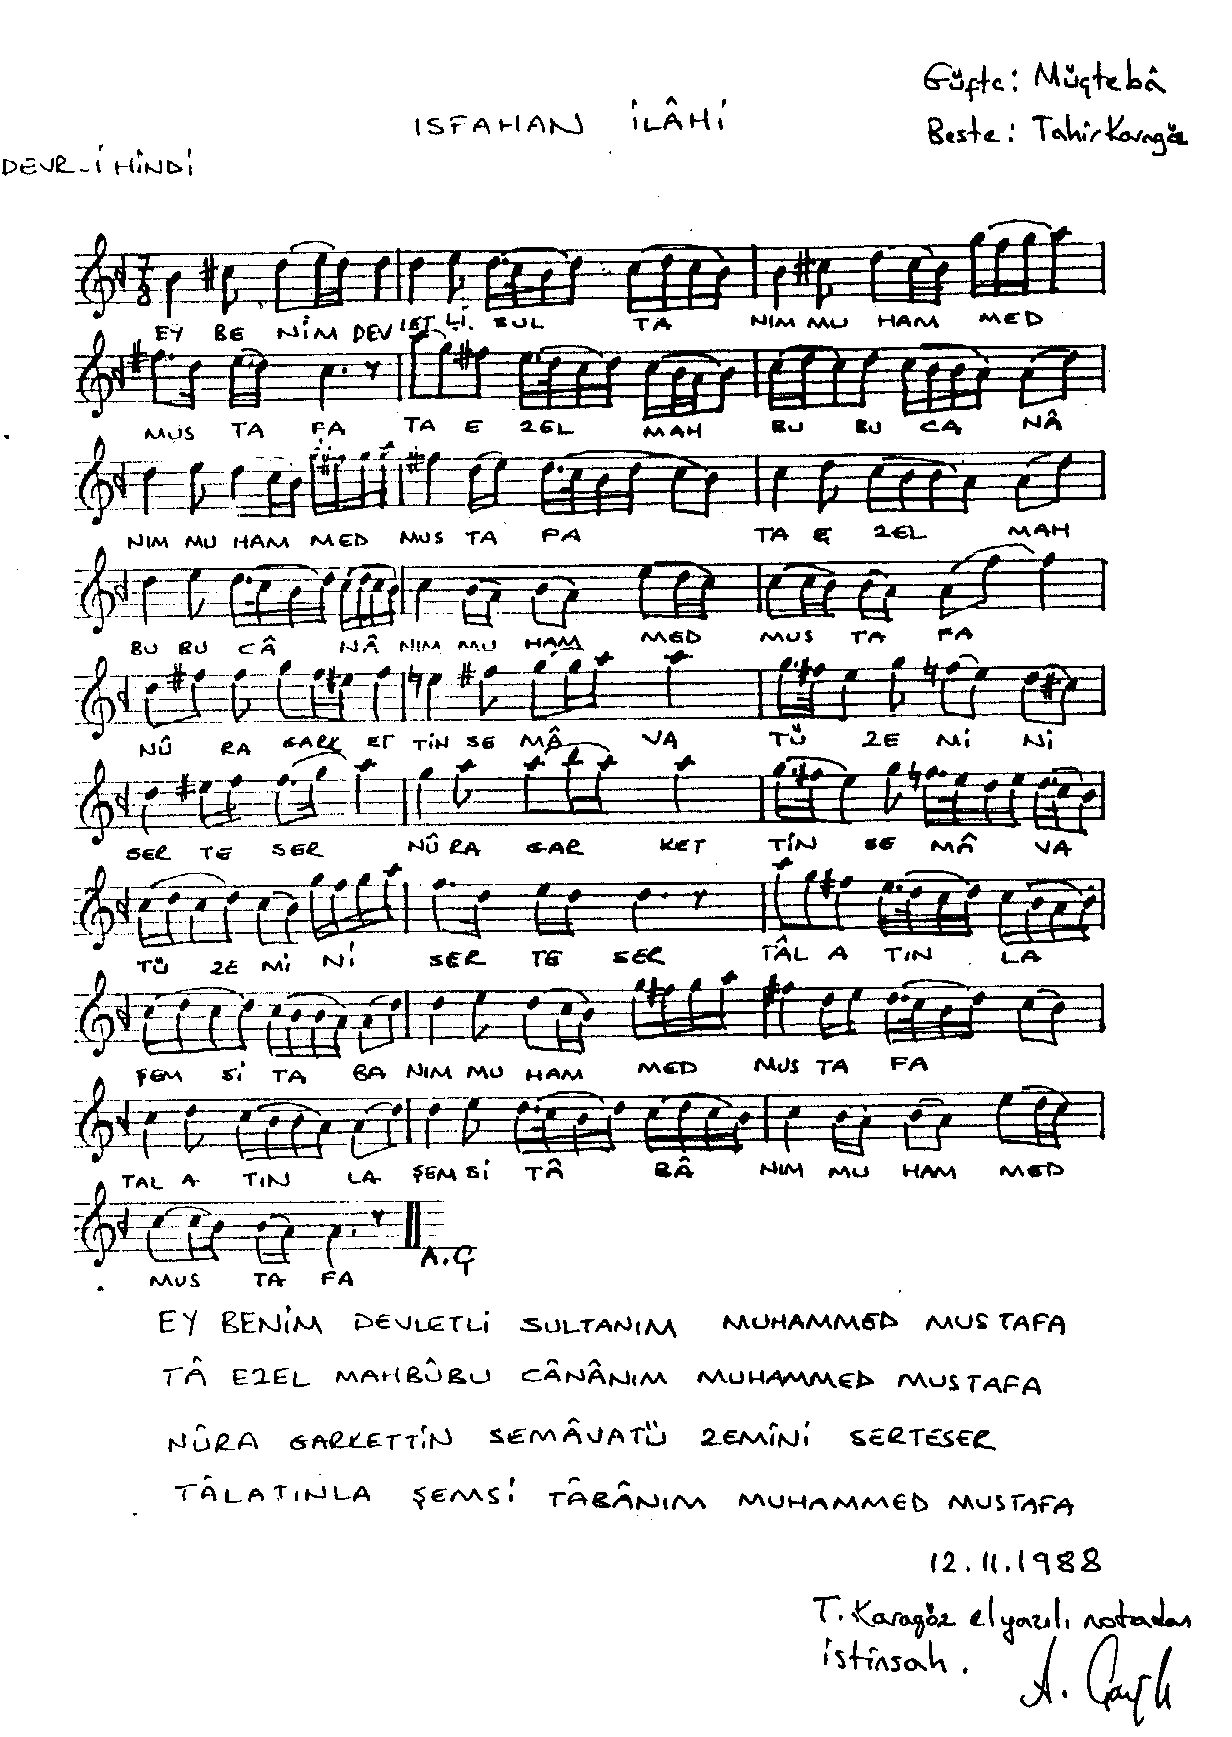 Güfte: Müçtebâ
ISFAHAN İLÂHİ
Beste: Tahir Karagöz
DEVR-İ HİNDİ
7/8
EY BE NİM DEV LET Lİ SUL TA NIM MU HAM MED
MUS TA FA TA E ZEL MAH BU BU CA NÂ
NIM MU HAM MED MUS TA FA TA E ZEL MAH
BU BU CÂ NÂ NIM MU HAM MED MUS TA FA
NÛ RA GARK ET TİN SE MÂ VA TÜ ZE Mİ Nİ
SER TE SER NÛ RA GAR KET TİN SE MÂ VA
TÜ ZE Mİ Nİ SER TE SER TÂL A TIN LA
ŞEM Sİ TA BA NIM MU HAM MED MUS TA FA
TAL A TIN LA ŞEM Sİ TÂ BÂ NIM MU HAM MED
MUS TA FA
A.Ç
EY BENİM DEVLETLİ SULTANIM MUHAMMED MUSTAFA
TÂ EZEL MAHBÛBU CÂNÂNIM MUHAMMED MUSTAFA
NÛRA GARKETTİN SEMÂVATÜ ZEMÎNİ SERTESER
TÂLATINLA ŞEMSİ TÂBÂNIM MUHAMMED MUSTAFA
12.11.1988
T. Karagöz elyazılı notadan
istinsah.
A.